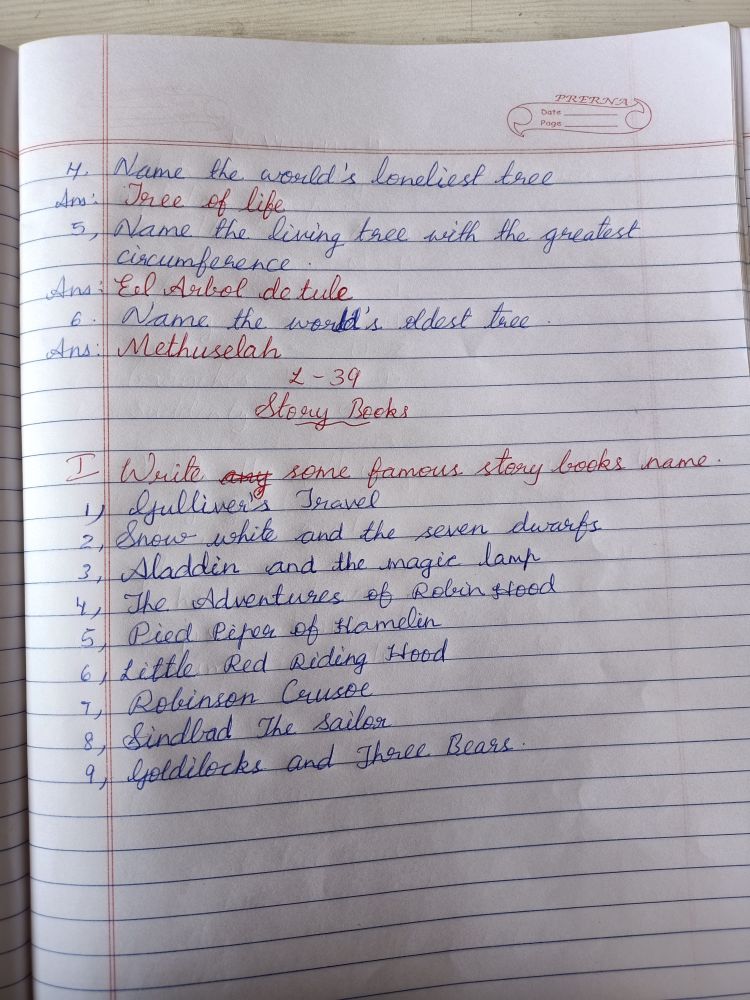 PRERNA
Date
Page
4. Name the world's loneliest tree
Ans: Tree of life
5, Name the living tree with the greatest
circumference.
Ans: Eel Arbol de tule
6. Name the world's oldest tree.
Ans: Methuselah
L-39
Story Books
I Write any some famous story books name.
1, Gulliver's Travel
2, Snow white and the seven dwarfs
3, Aladdin and the magic lamp
4, The Adventures of Robin Hood
5, Pied Piper of Hamelin
6, Little Red Riding Hood
7, Robinson Crusoe
8, Sindbad The sailor
9, Goldilocks and Three Bears.